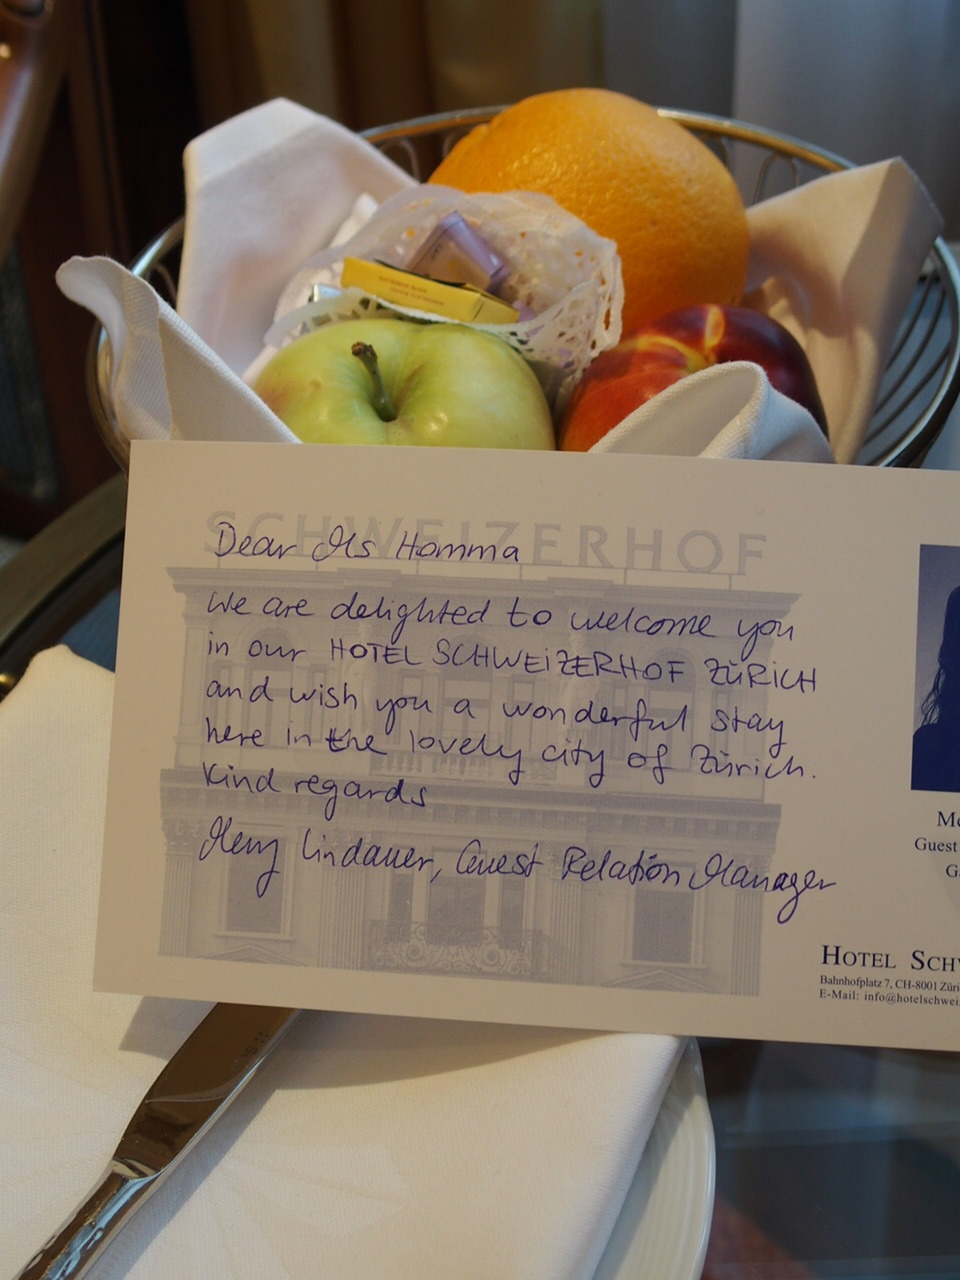 SCHWEIZERHOF
Dear Ms Homma
We are delighted to welcome you
in our HOTEL SCHWEIZERHOF ZÜRICH
and wish you a wonderful stay
here in the lovely city of Zürich.
Kind regards
Lindauer, Guest Relation Manager
Me
Guest
G
HOTEL SCHW
Bahnhofplatz 7, CH-8001 Züri
E-Mail: info@hotelschwei